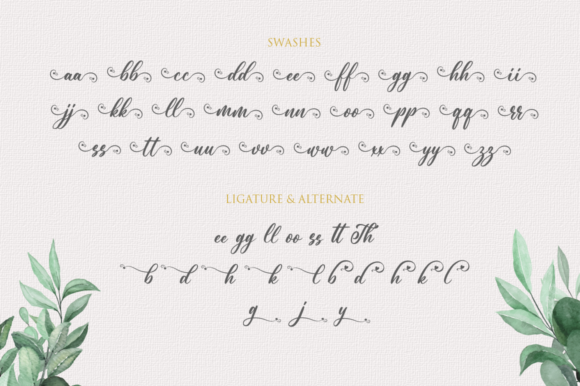 SWASHES
aa bb cc dd ee ff gg hh ii
jj kk ll mm nn oo pp qq rr
ss tt uu vv ww xx yy zz
LIGATURE & ALTERNATE
ee gg ll oo ss tt Th
b d h k l b d h k l
g j y